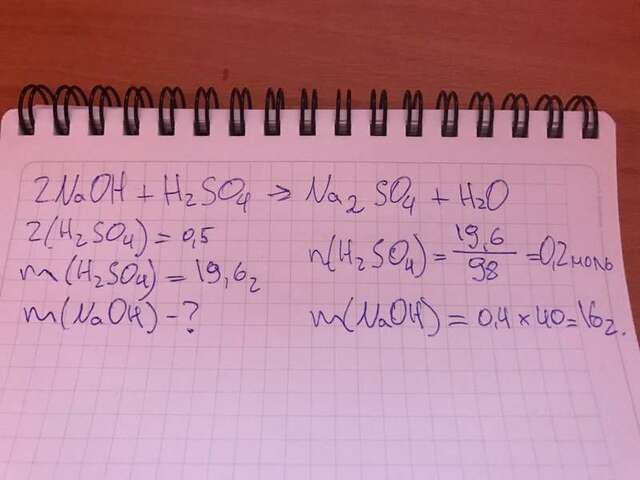 2NaOH + H₂SO₄ → Na₂SO₄ + H₂O
z(H₂SO₄) = 0,5
m(H₂SO₄) = 19,6г
m(NaOH) - ?
n(H₂SO₄) = 19,6/98 = 0,2 моль
m(NaOH) = 0,4 × 40 = 16г.